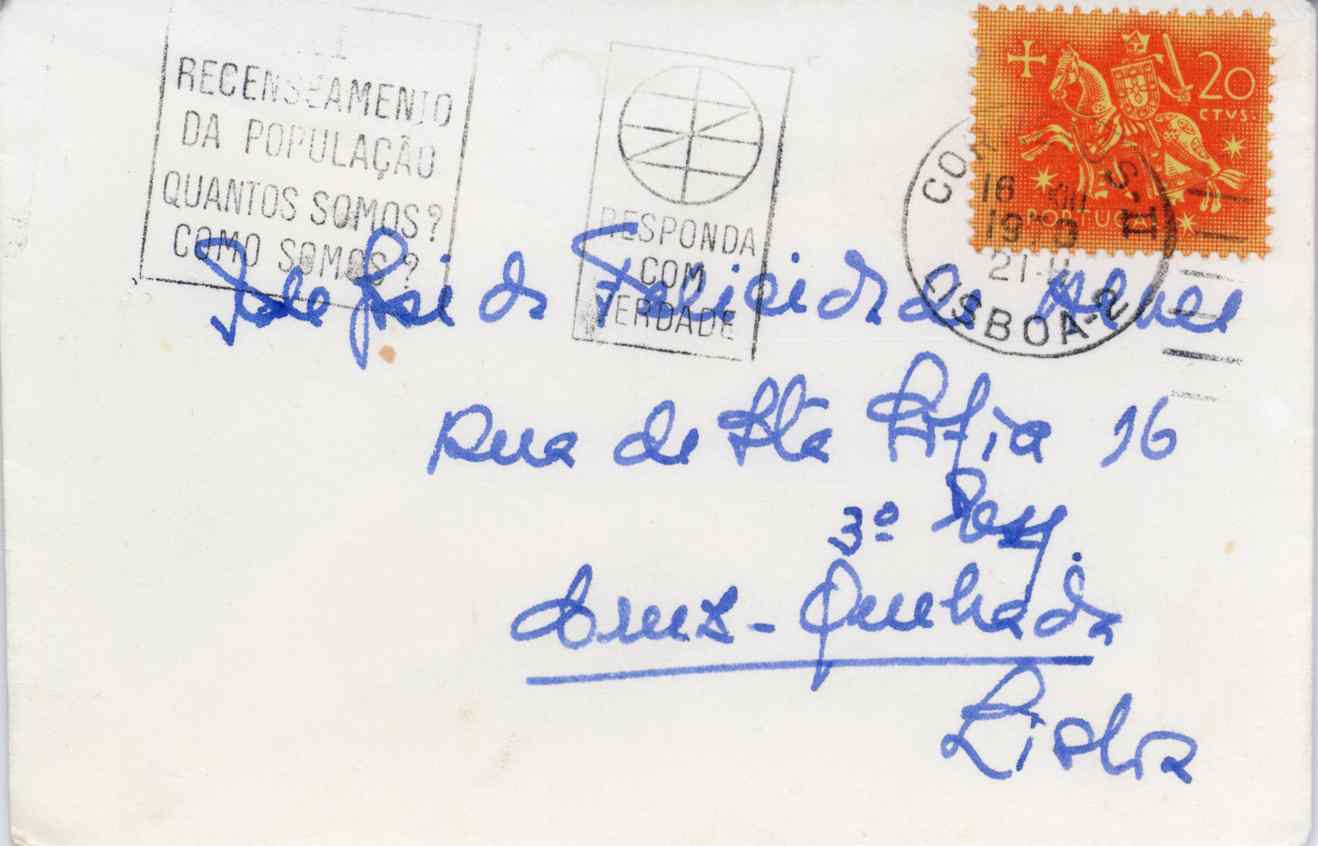 XI
RECENSEAMENTO
DA POPULAÇÃO
QUANTOS SOMOS?
COMO SOMOS?
RESPONDA
COM
VERDADE
20
CTVS.
PORTUGAL
16 XII
1970
LISBOA-2
José da Felicidade Alves
Rua de Sta Sofia 16
3º
Cruz-Quebrada
Lisboa